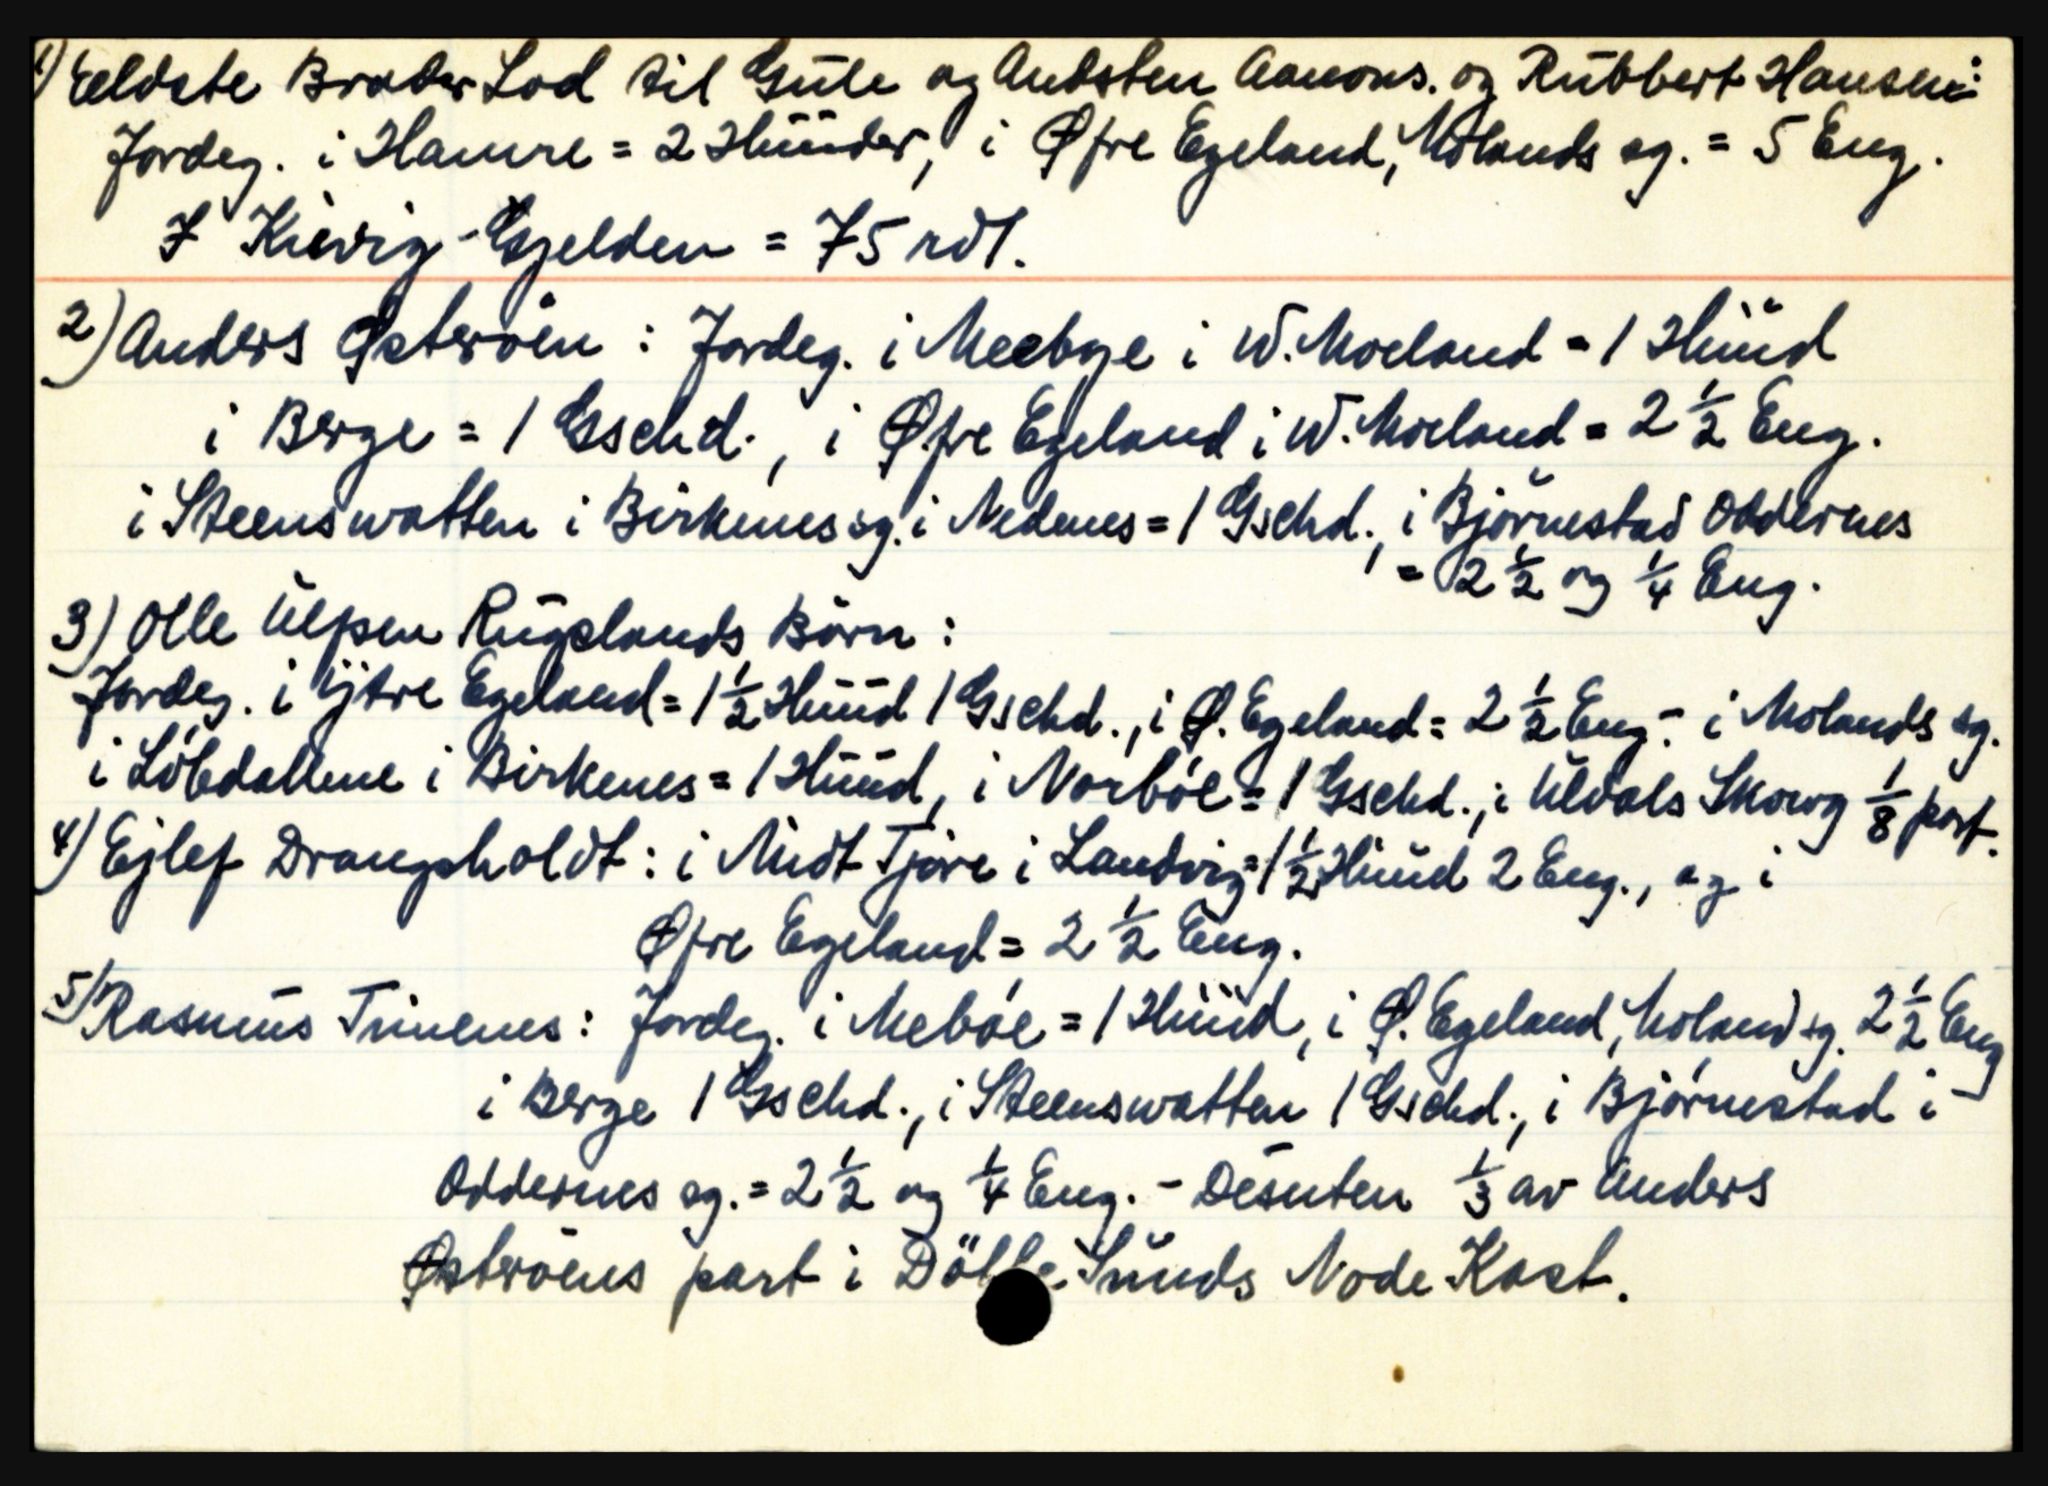 1) Eeldste Broder Lod til Güle og Andsten Aanons. og Rübbert Hansen:
Jordeg. i Hamre = 2 Hüüder, i Øfre Egeland, Molands sg. = 5 Eng.
I Kievig-Gjelden = 75 rdl.
2) Anders Østeröen : Jordeg. i Meebøe i W. Moeland = 1 Hüüd
i Berge = 1 Gschd., i Øfre Egeland i W. Moeland = 2 1/2 Eng.
i Steenswatten i Birkenes sg. i Nedenes = 1 Gschd., i Björnestad Oddernes
= 2 1/2 og 1/4 Eng.
3) Olle Ulfsen Rügslands Börn :
Jordeg. i Ÿtre Egeland = 1 1/2 Hüüd 1 Gschd., i Ø. Egeland = 2 1/2 Eng - i Molands sg.
i Löbdallene i Birkenes = 1 Hüüd, i Norböe = 1 Gschd., i Uldals Skowg 1/8 part.
4) Ejlef Drangsholdt : i Midt Tjøre i Landvig = 1 1/2 Hüüd 2 Eng., og i
Øfre Egeland = 2 1/2 Eng.
5) Rasmüs Timenes : Jordeg. i Meböe = 1 Hüüd, i Ø. Egeland, Moland sg. 2 1/2 Eng
i Berge 1 Gschd., i Steenswatten 1 Gschd., i Björnestad i
Oddernes sg. = 2 1/2 og 1/4 Eng. - Desuten 1/3 av Anders
Østeröens part i Sünds Node Kast.